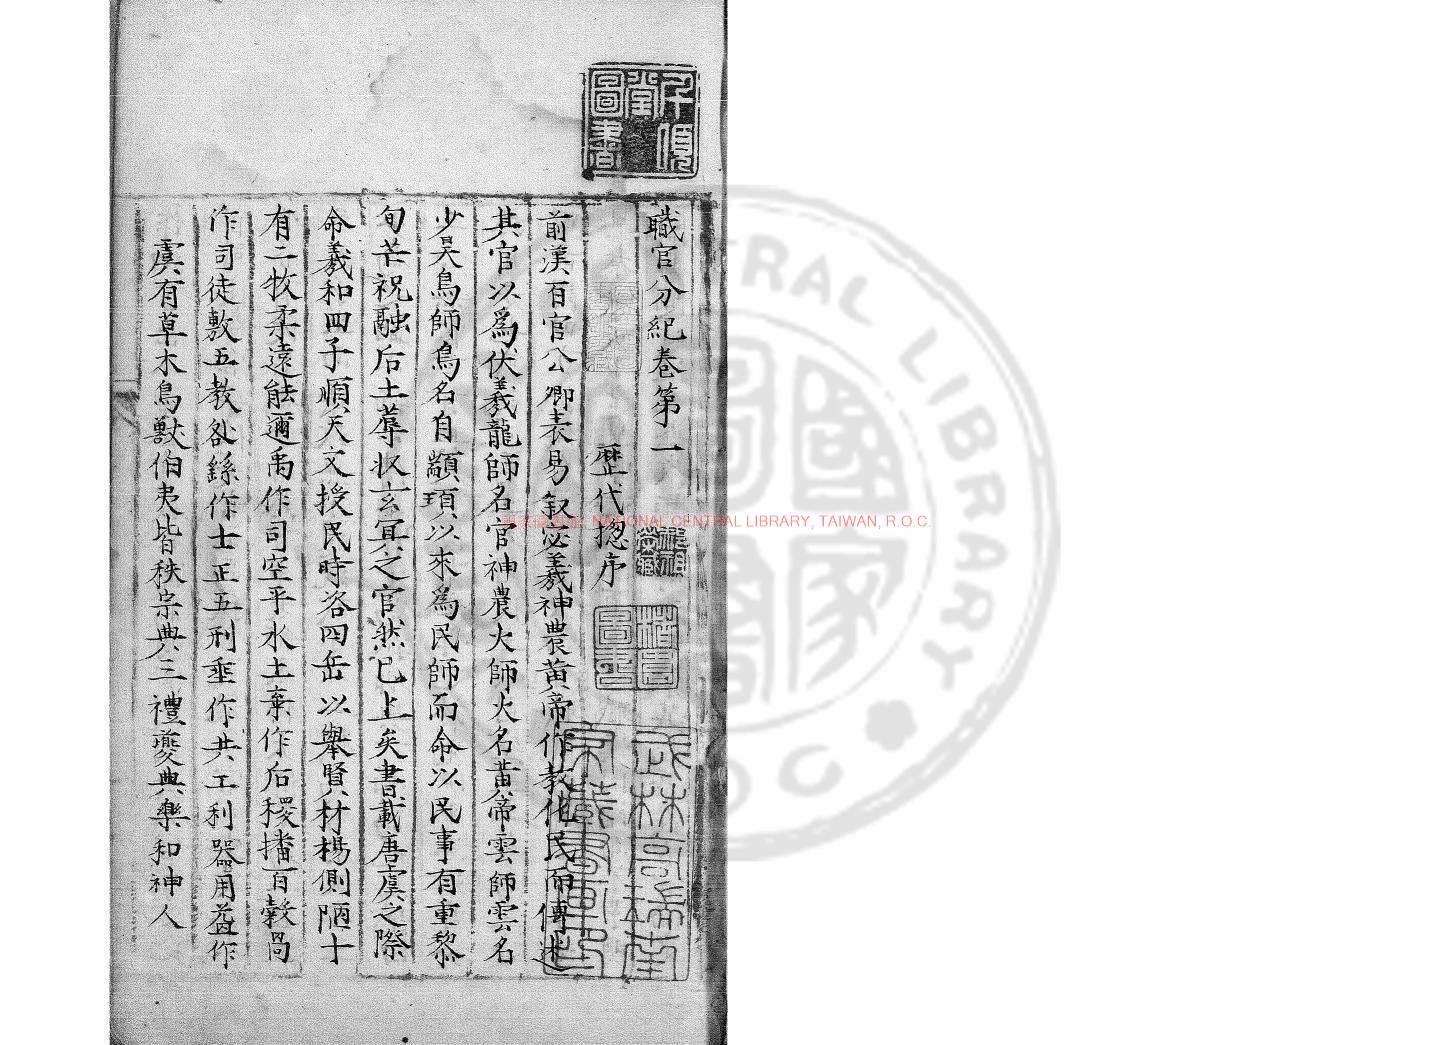 職官分紀卷第一
歷代揔序
前漢百官公卿表易叙宓羲神農黃帝作教化民而傳述
其官以爲伏羲龍師名官神農火師火名黃帝雲師雲名
少昊鳥師鳥名自顓頊以來爲民師而命以民事有重黎
句芒祝融后土蓐收玄冥之官然已上矣書載唐虞之際
命羲和四子順天文授民時洛四岳以舉賢材楊側陋十
有二牧柔遠能邇禹作司空平水土棄作后稷播百穀卨
作司徒敷五教咎繇作士正五刑垂作共工利器用益作
虞有草木鳥獸伯夷皆秩宗典三禮夔典樂和神人
千頃堂圖書
武林高瑞南家藏書畫印
NATIONAL CENTRAL LIBRARY, TAIWAN, R.O.C.